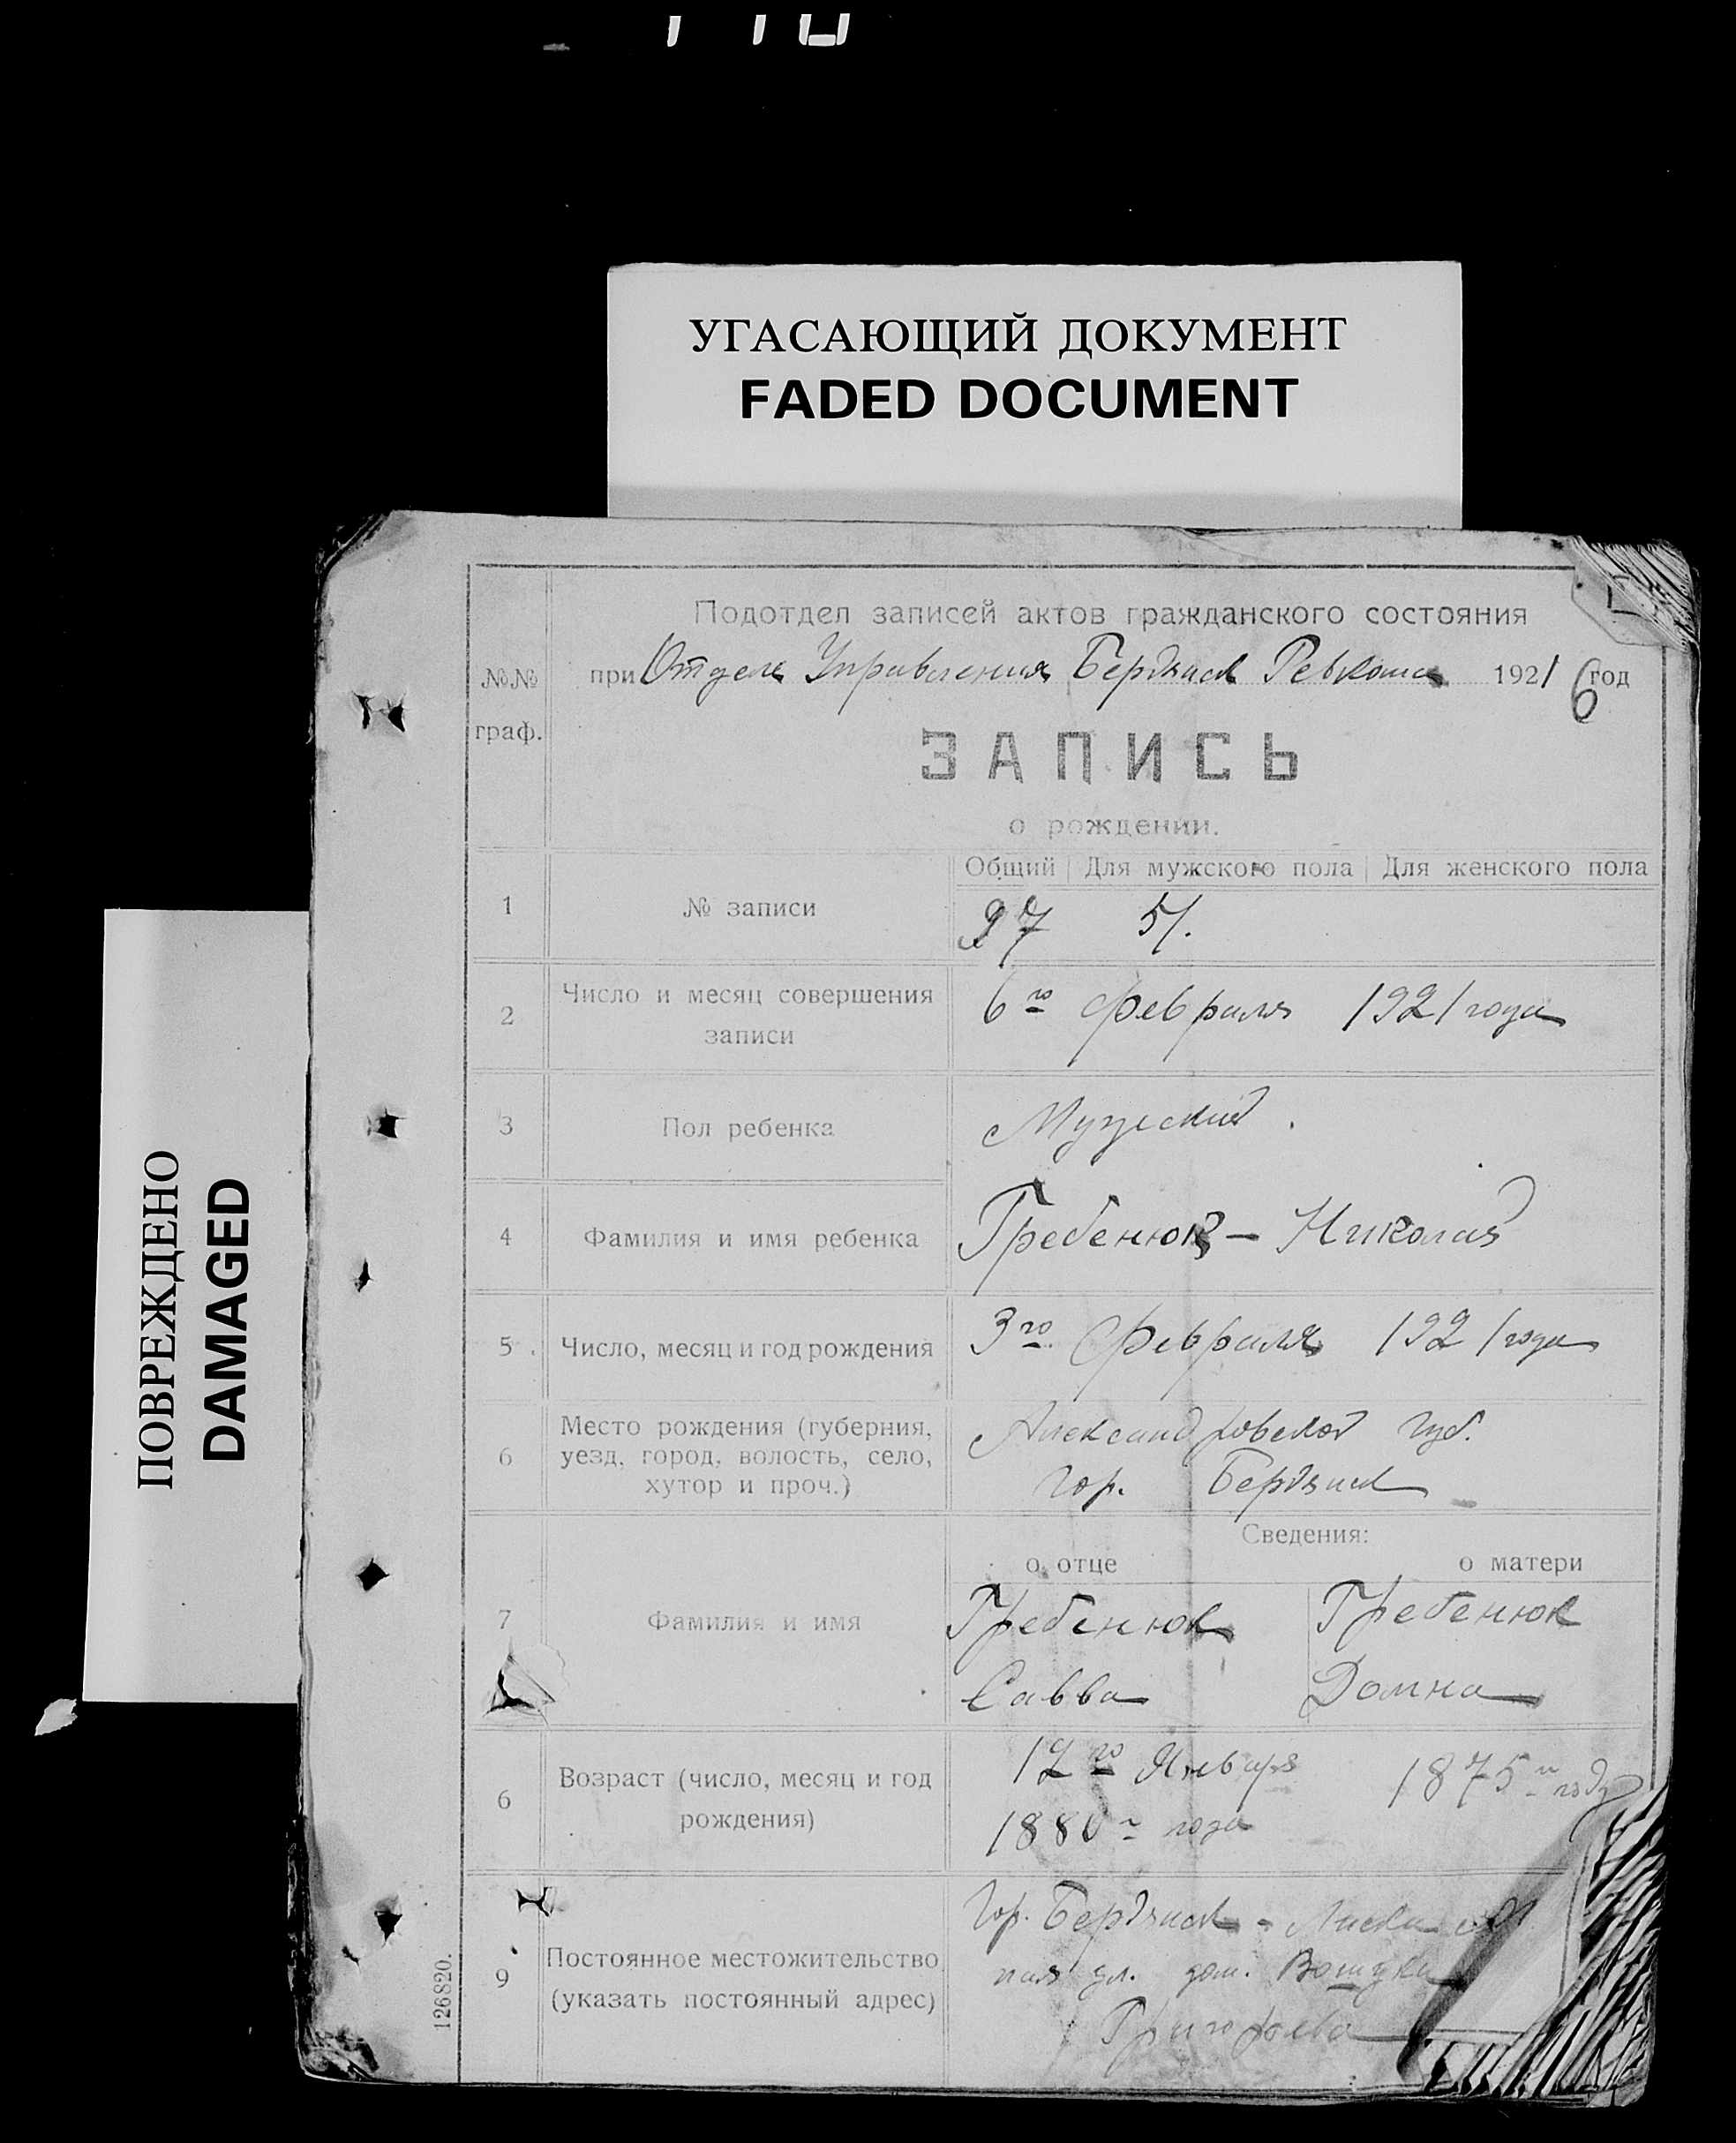 УГАСАЮЩИЙ ДОКУМЕНТ
FADED DOCUMENT
ПОВРЕЖДЕНО
DAMAGED
Подотдел записей актов гражданского состояния
№№ граф.
при Отделе Управления Бердянск Ревкома 1921 год
6
ЗАПИСЬ
о рождении.
Общий Для мужского пола Для женского пола
1 № записи 97 51.
2 Число и месяц совершения записи 6го февраля 1921 года
3 Пол ребенка Мужской.
4 Фамилия и имя ребенка Гребенюк - Николай
5 Число, месяц и год рождения 3го февраля 1921 года
6 Место рождения (губерния, уезд, город, волость, село, хутор и проч.) Александровской губ.
гор. Бердянск
Сведения:
о отце о матери
7 Фамилия и имя Гребенюк Гребенюк
Савва Домна
6 Возраст (число, месяц и год рождения) 12го Января 1875 году
1880 года
9 Постоянное местожительство (указать постоянный адрес) Гор. Бердянск - Лиски
ул. дом.
Григорьева
126820.